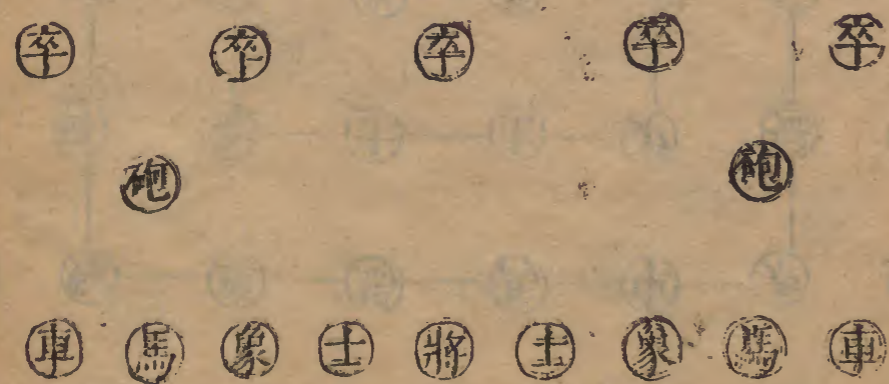 卒 卒 卒 卒 卒
砲 砲
車 馬 象 士 將 士 象 馬 車